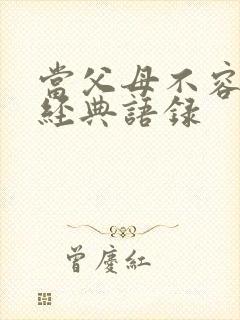 當父母不容
經典語录
曾慶紅